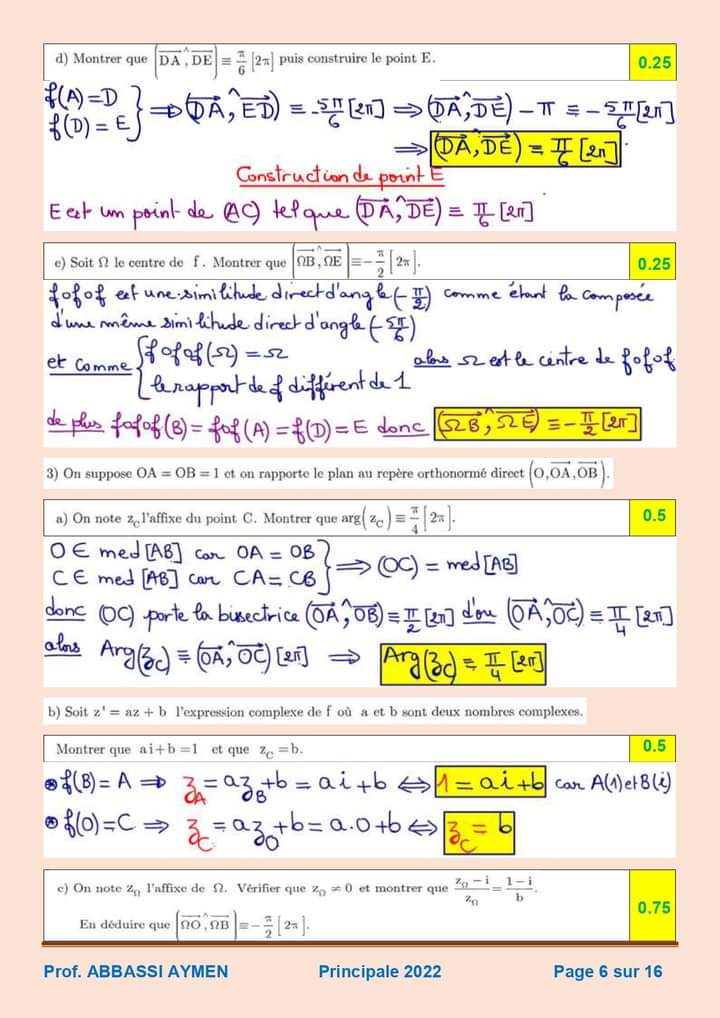 d) Montrer que (DA, DE) ≡ π/6 [2π] puis construire le point E.
0.25
f(A) = D
f(D) = E } ⟹ (DA, ED) ≡ -5π/6 [2π] ⟹ (DA, DE) - π ≡ -5π/6 [2π]
⟹ (DA, DE) ≡ π/6 [2π]
Construction de point E
E est un point de (AC) tel que (DA, DE) ≡ π/6 [2π]
e) Soit Ω le centre de f. Montrer que (ΩB, ΩE) ≡ -π/2 [2π].
0.25
fofof est une similitude direct d'angle (-π/2) comme étant la composée
d'une même similitude direct d'angle (-5π/6)
et comme { fofof(Ω) = Ω
le rapport de f différent de 1 alors Ω est le centre de fofof
de plus fofof(B) = fof(A) = f(D) = E donc (ΩB, ΩE) ≡ -π/2 [2π]
3) On suppose OA = OB = 1 et on rapporte le plan au repère orthonormé direct (O, OA, OB).
a) On note z_C l'affixe du point C. Montrer que arg(z_C) ≡ π/4 [2π].
0.5
O ∈ med [AB] car OA = OB
C ∈ med [AB] car CA = CB } ⟹ (OC) = med [AB]
donc (OC) porte la bissectrice (OA, OB) ≡ π/2 [2π] d'où (OA, OC) ≡ π/4 [2π]
alors Arg(z_C) ≡ (OA, OC) [2π] ⟹ Arg(z_C) ≡ π/4 [2π]
b) Soit z' = az + b l'expression complexe de f où a et b sont deux nombres complexes.
Montrer que ai+b =1 et que z_C =b.
0.5
⊛ f(B) = A ⟹ z_A = az_B + b = ai + b ⟺ 1 = ai + b car A(1) et B(i)
⊛ f(O) = C ⟹ z_C = az_O + b = a.0 + b ⟺ z_C = b
c) On note z_Ω l'affixe de Ω. Vérifier que z_Ω ≠ 0 et montrer que (z_Ω - i)/z_Ω = (1-i)/b.
0.75
En déduire que (ΩO, ΩB) ≡ -π/2 [2π].
Prof. ABBASSI AYMEN Principale 2022 Page 6 sur 16